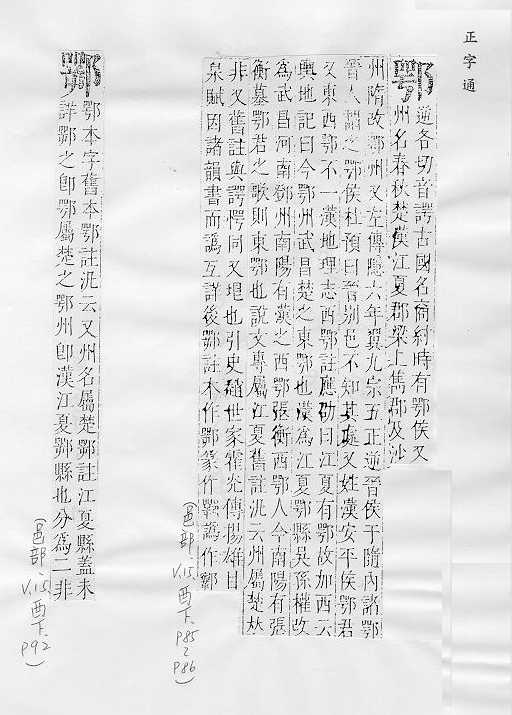 正字通
鄂
逆各切音諤古國名商紂時有鄂侯又
州名春秋楚漢江夏郡梁上雋郡及沙
州隋改鄂州又左傳隱六年翼九宗五正逆晉侯于隨內諸鄂
晉人謂之鄂侯杜預曰晉別邑不知其處又姓漢安平侯鄂君
又東西鄂不一漢地理志西鄂註應劭曰江夏有鄂故加西云
輿地記曰今鄂州武昌楚之東鄂也漢為江夏鄂縣吳孫權改
為武昌河南鄧州南陽有漢之西鄂張衡西鄂人今南陽有張
衡墓鄂君之歌則東鄂也說文專屬江夏舊註汎云州屬楚
非又舊註與諤愕同又垠也引史趙世家霍光傳揚雄甘
泉賦因諸韻書而譌互詳後鄂註本作鄂篆作譌作
鄂本字舊本鄂註汎云又州名屬楚鄂註江夏縣蓋未
詳鄂之即鄂屬楚之鄂州即漢江夏鄂縣也分為二非
(邑部、V.15,酉下、P85~P86)
(邑部、V.15,酉下、P92)